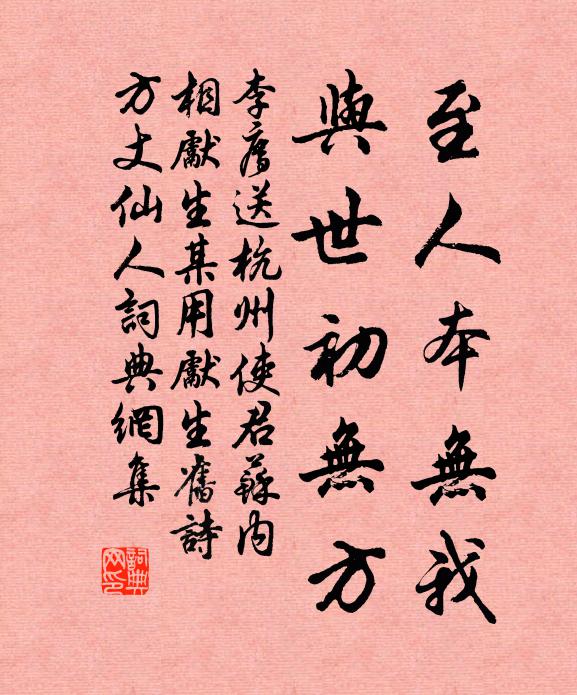 至人本無我
與世初無方
李廌送杭州使君蘇内
相獻生某用獻生舊詩
方丈仙人詞典網集
詞典网印